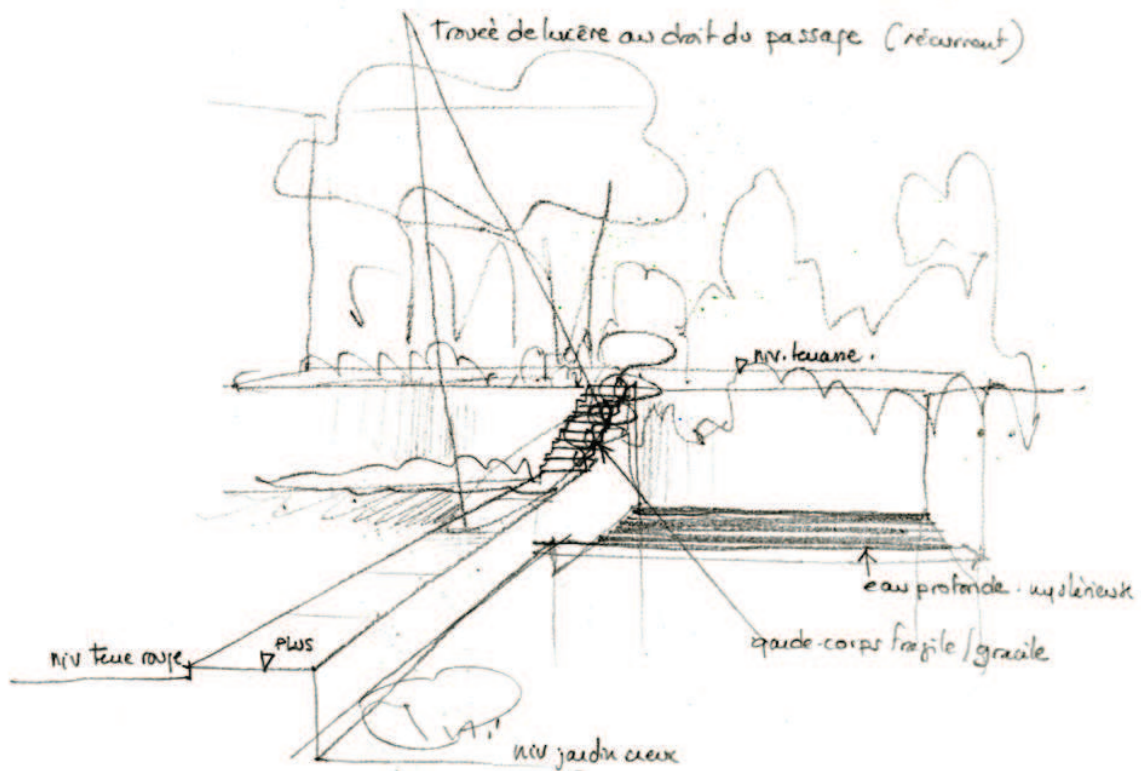 trouée de lumière au droit du passage (récurrent)
niv. terrasse.
eau profonde. mystérieuse
garde-corps fragile/gracile
niv terre rouge
PLUS
niv jardin creux